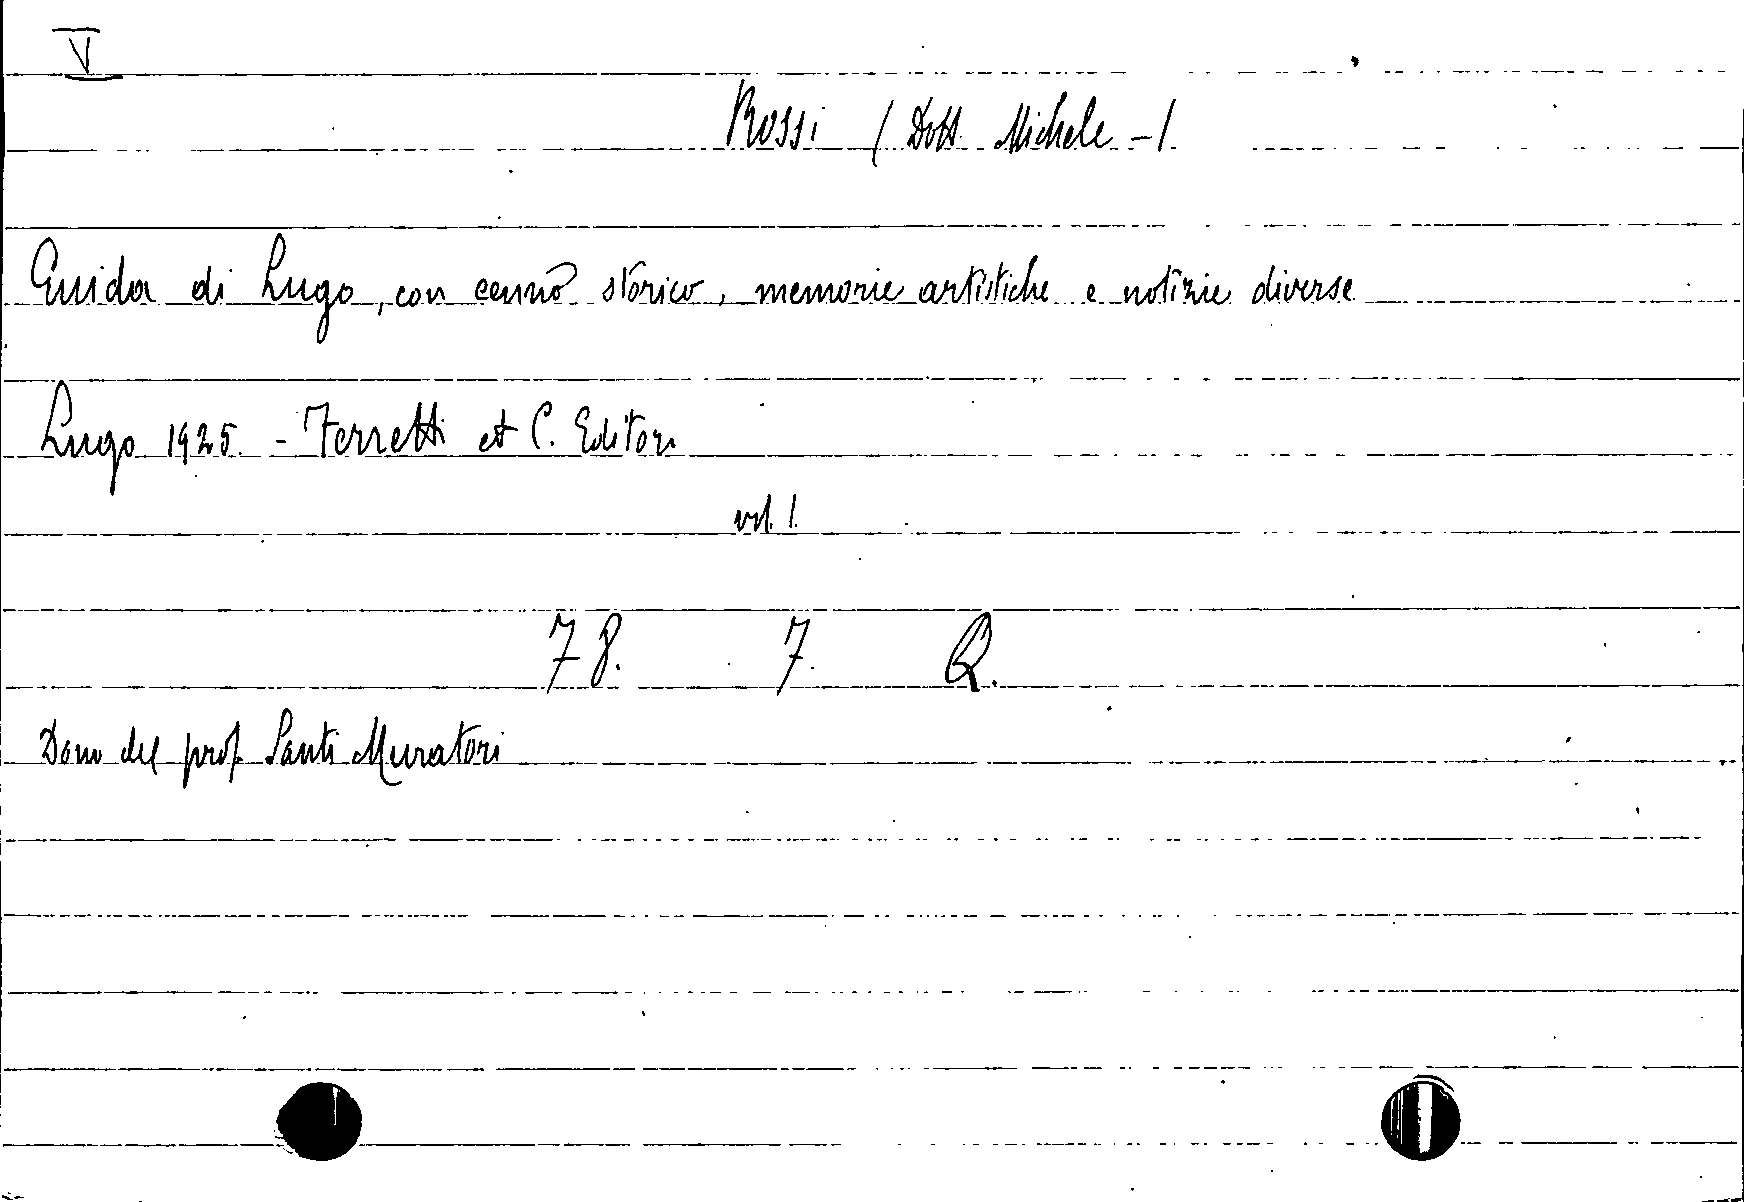 V
Rossi / Dott. Michele - /
Guida di Lugo, con cenno storico, memorie artistiche e notizie diverse
Lugo 1925. - Ferretti et C. Editori
vol. 1.
78. 7. Q.
Dono del prof. Santi Muratori